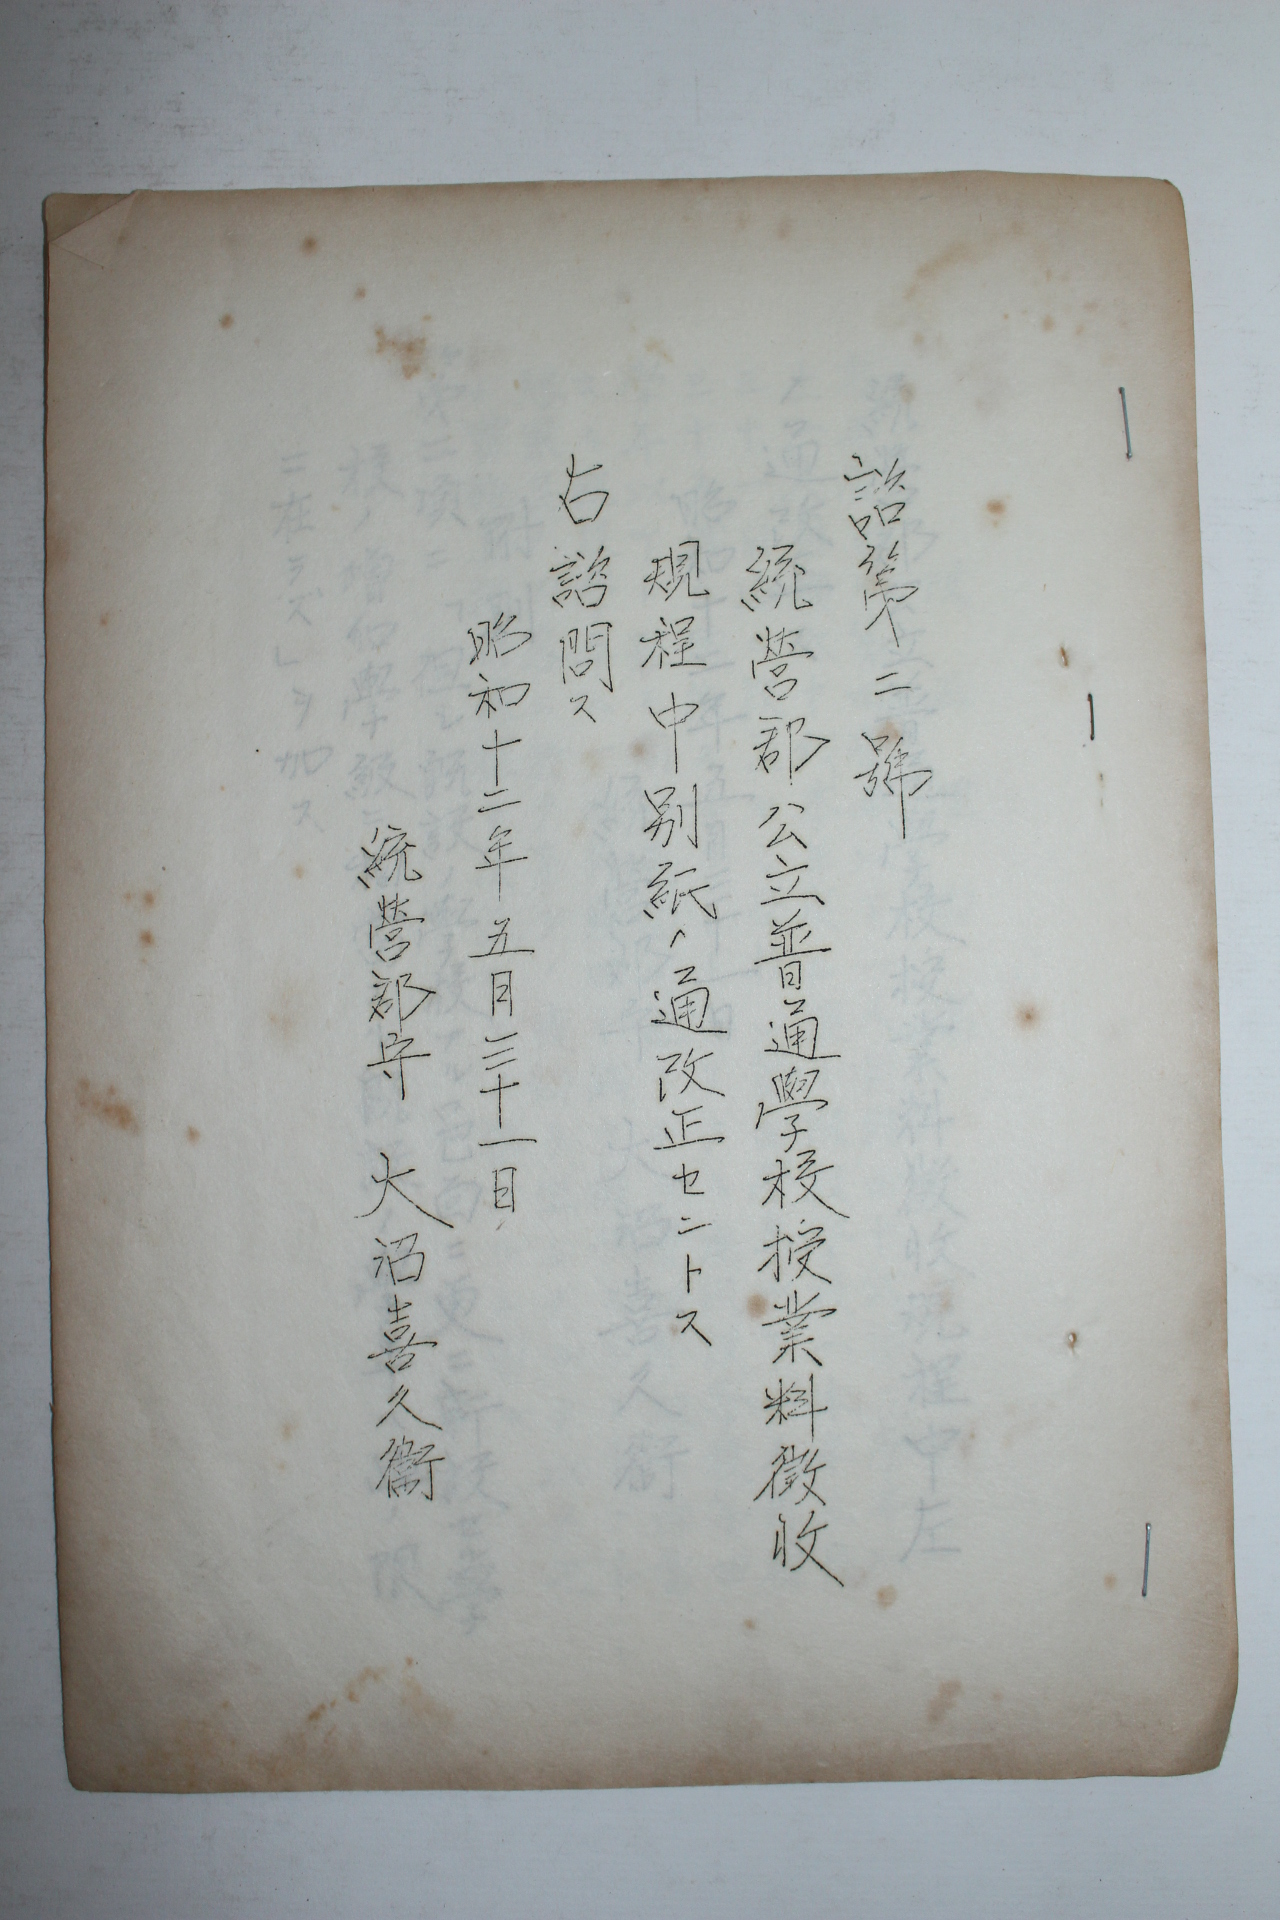 諮第二號
統營郡公立普通學校授業料徴收
規程中別紙ノ通改正セントス
右諮問ス
昭和十二年五月三十一日
統營郡守　大沼喜久衞